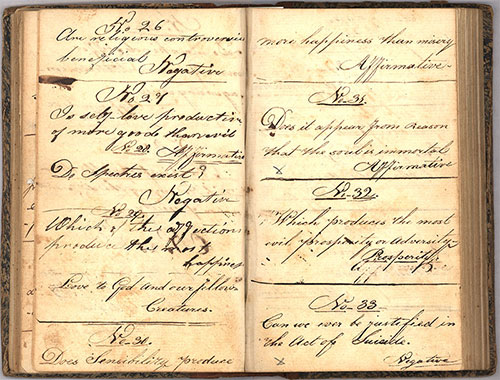 No 26
Are religious controversies
beneficial
Negative
No 27
Is self-love productive
of more good than evil
No 28. Affirmative
Do Spectres exist?
Negative
No 29.
Which of the affections
produce the most
happiness
Love to God and our fellow
Creatures.
No 30.
Does Sensibility produce
more happiness than misery
Affirmative
No 31.
Does it appear from reason
that the soul is immortal
Affirmative
No 32.
Which produces the most
evil prosperity or Adversity
Prosperity
No 33
Can we ever be justified in
the Act of Suicide.
Negative